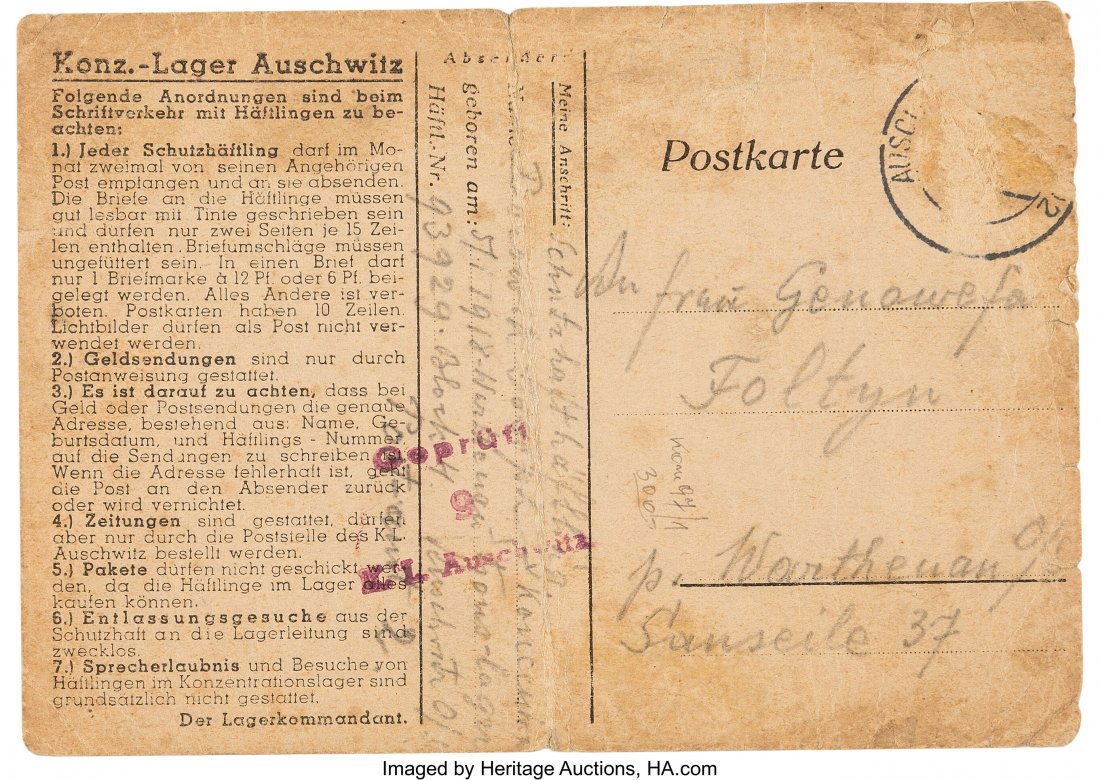 Konz.-Lager Auschwitz
Folgende Anordnungen sind beim
Schriftverkehr mit Häftlingen zu be-
achten:
1.) Jeder Schutzhäftling darf im Mo-
nat zweimal von seinen Angehörigen
Post empfangen und an sie absenden.
Die Briefe an die Häftlinge müssen
gut lesbar mit Tinte geschrieben sein
und dürfen nur zwei Seiten je 15 Zei-
len enthalten. Briefumschläge müssen
ungefüttert sein. In einen Brief darf
nur 1 Briefmarke à 12 Pf. oder 6 Pf. bei-
gelegt werden. Alles Andere ist ver-
boten. Postkarten haben 10 Zeilen.
Lichtbilder dürfen als Post nicht ver-
wendet werden.
2.) Geldsendungen sind nur durch
Postanweisung gestattet.
3.) Es ist darauf zu achten, dass bei
Geld oder Postsendungen die genaue
Adresse, bestehend aus: Name, Ge-
burtsdatum, und Häftlings - Nummer
auf die Sendungen zu schreiben ist.
Wenn die Adresse fehlerhaft ist, geht
die Post an den Absender zurück
oder wird vernichtet.
4.) Zeitungen sind gestattet, dürfen
aber nur durch die Poststelle des K.L.
Auschwitz bestellt werden.
5.) Pakete dürfen nicht geschickt wer-
den, da die Häftlinge im Lager alles
kaufen können.
6.) Entlassungsgesuche aus der
Schutzhaft an die Lagerleitung sind
zwecklos.
7.) Sprecherlaubnis und Besuche von
Häftlingen im Konzentrationslager sind
grundsätzlich nicht gestattet.
Der Lagerkommandant.
Absender:
Meine Anschrift:
Name
geboren am: 5.1.1918
Häftl.-Nr. 93929 Block
Geprüft
K. L. Auschwitz
Postkarte
AUSCH
An frau Genowefa
Foltyn
p. Warthenau
37
3000
Imaged by Heritage Auctions, HA.com